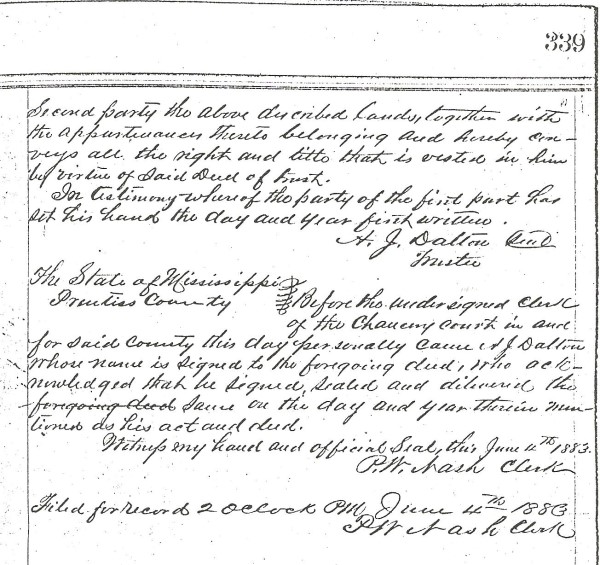 339
Second party the above described lands, together with
the appurtenances thereto belonging and hereby con-
veys all the right and title that is vested in him
by virtue of said Deed of trust.
In testimony whereof the party of the first part has
set his hand the day and year first written.
A. J. Dalton Seal
Trustee
The State of Mississippi
Prentiss County
Before the undersigned Clerk
of the Chancery court in and
for said County this day personally came A J Dalton
whose name is signed to the foregoing deed, who ack-
nowledged that he signed, sealed and delivered the
foregoing deed same on the day and year therein men-
tioned as his act and deed.
Witness my hand and official Seal, this June 4th 1883.
P. W. Nash Clerk
Filed for record 2 oclock PM, June 4th 1883
P W Nash Clerk